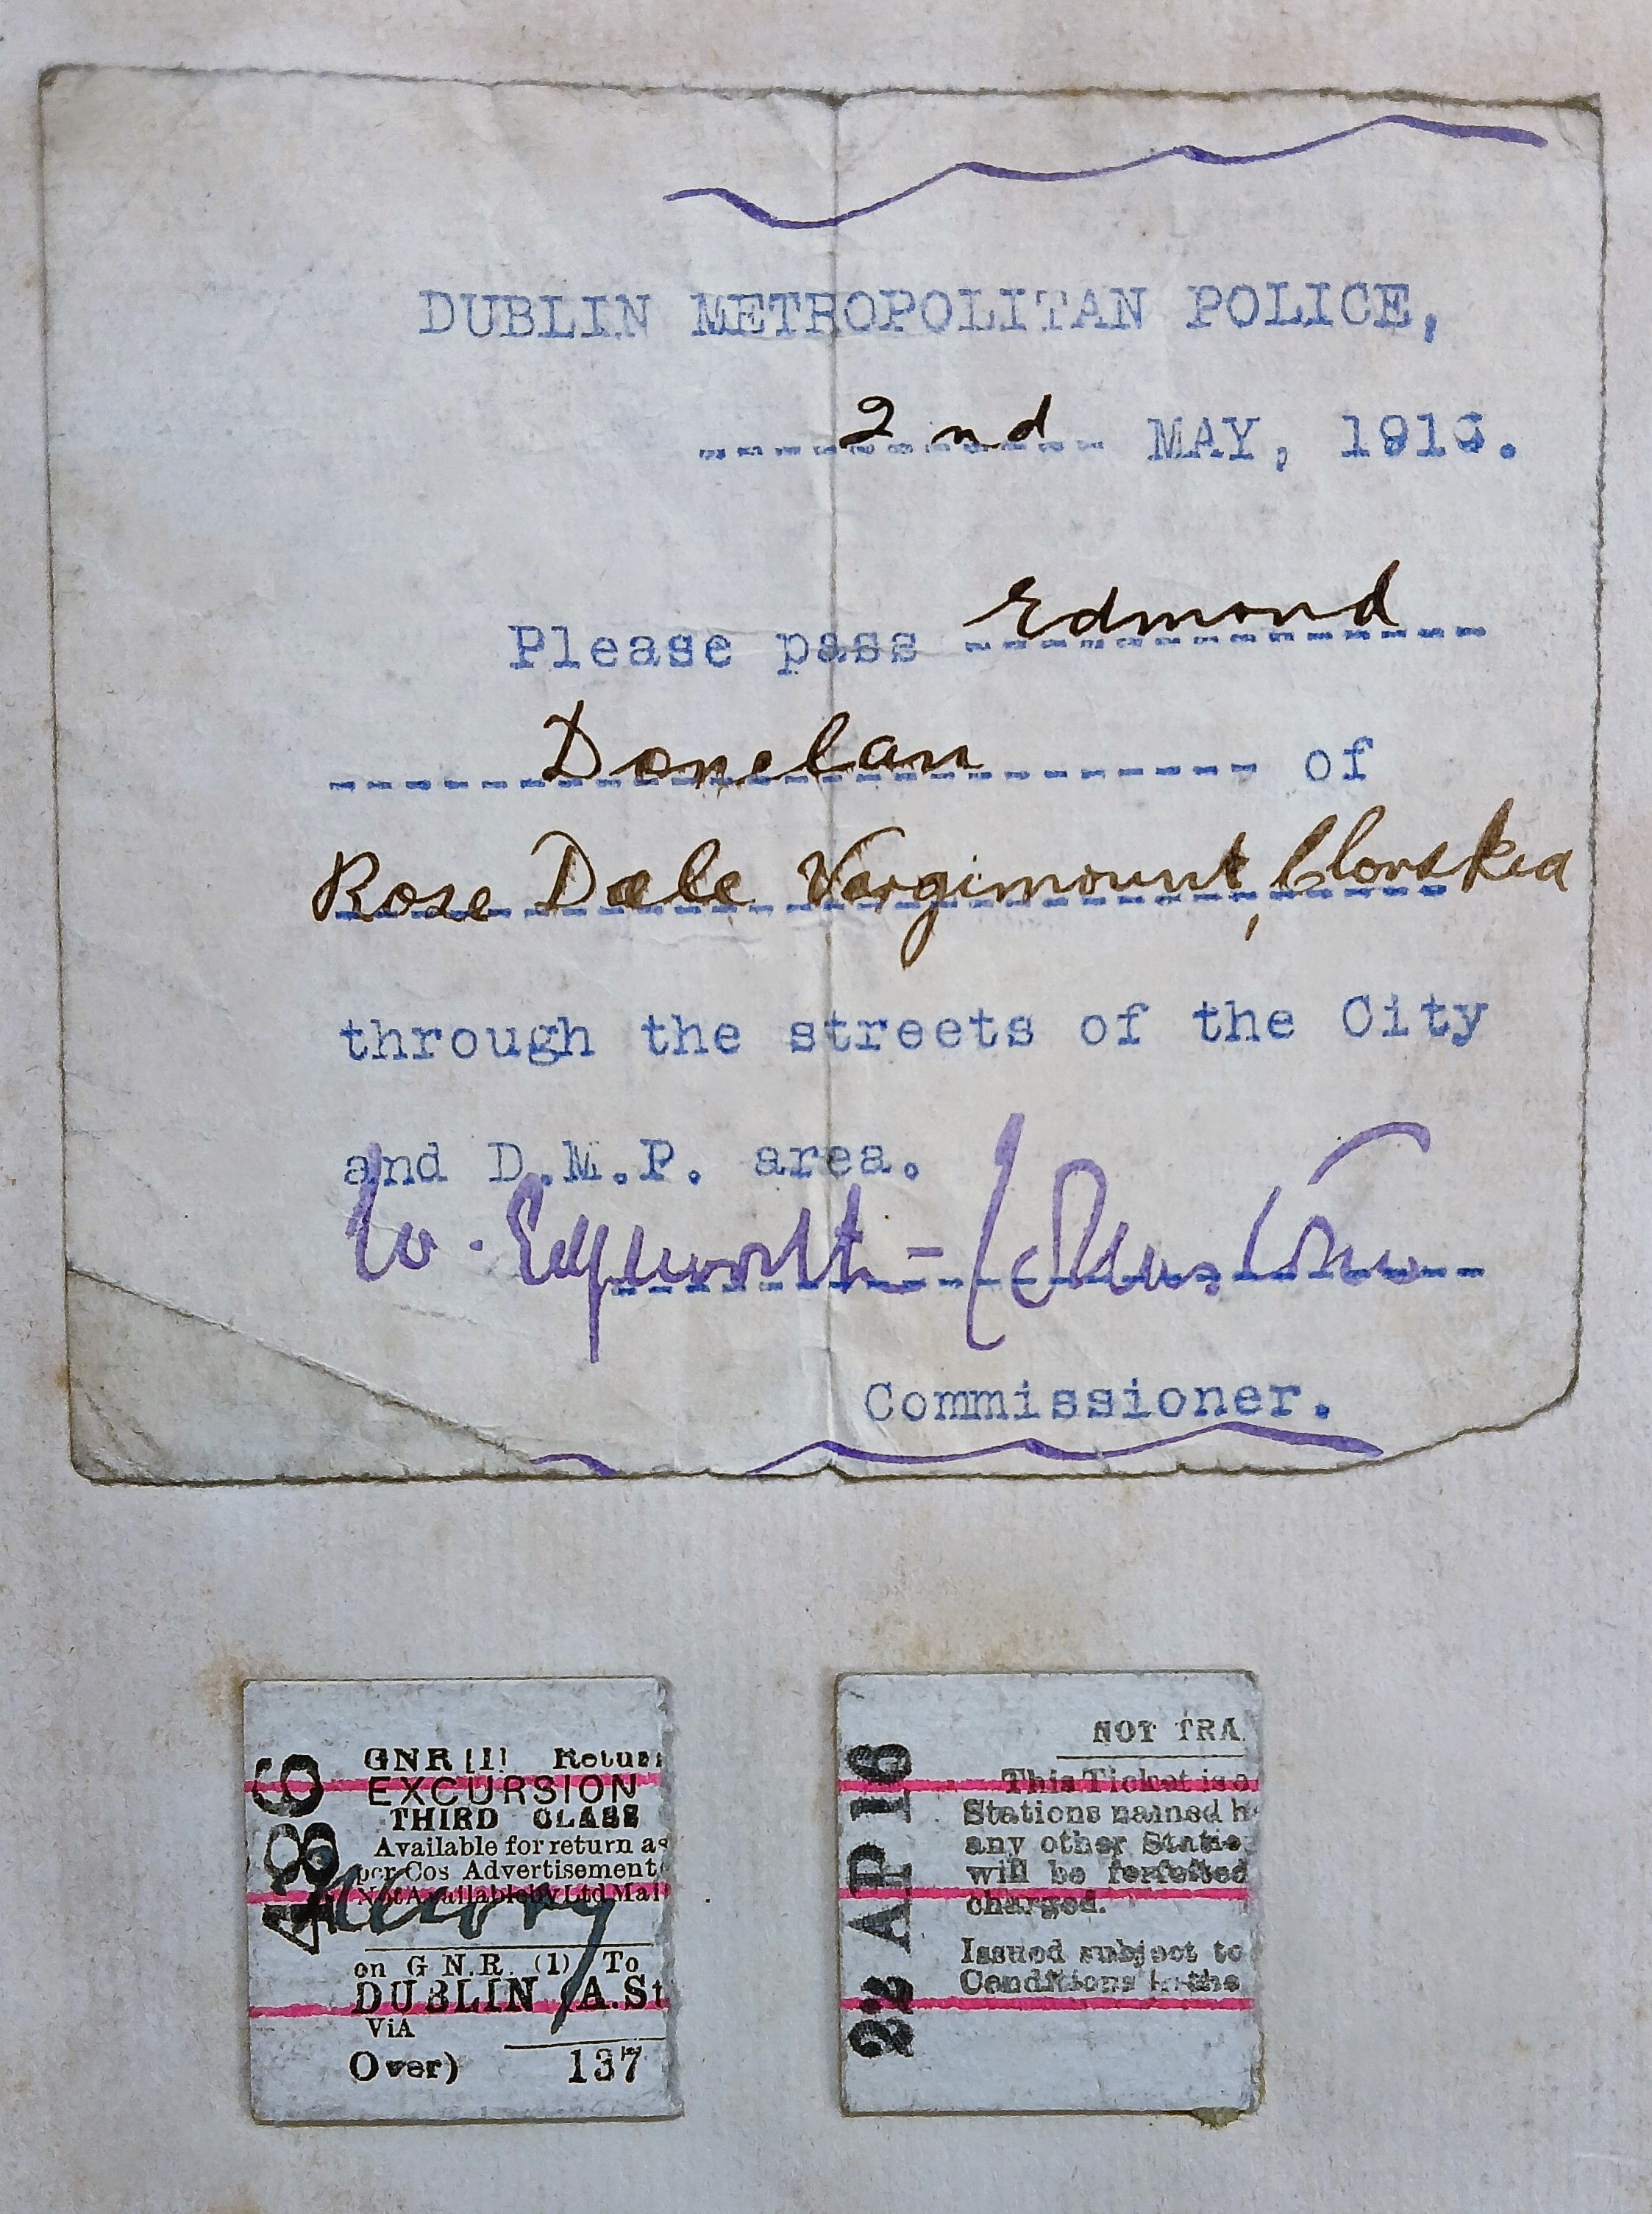 DUBLIN METROPOLITAN POLICE,
2nd MAY, 1916.
Please pass Edmond
Donelan of
Rose Dale Vergimount, Clonskea
through the streets of the City
and D.M.P. area.
W. Edgeworth-Johnstone
Commissioner.
GNR [I] Retur
EXCURSION
THIRD CLASS
Available for return as
per Cos Advertisement
Not Available by Ltd Mai
on G N.R. (1) To
DUBLIN A.St
ViA
Over) 137
NOT TRA
This Ticket is
Stations named h
any other Statio
will be forfeited
charged.
Issued subject to
Conditions in the
22 AP 16